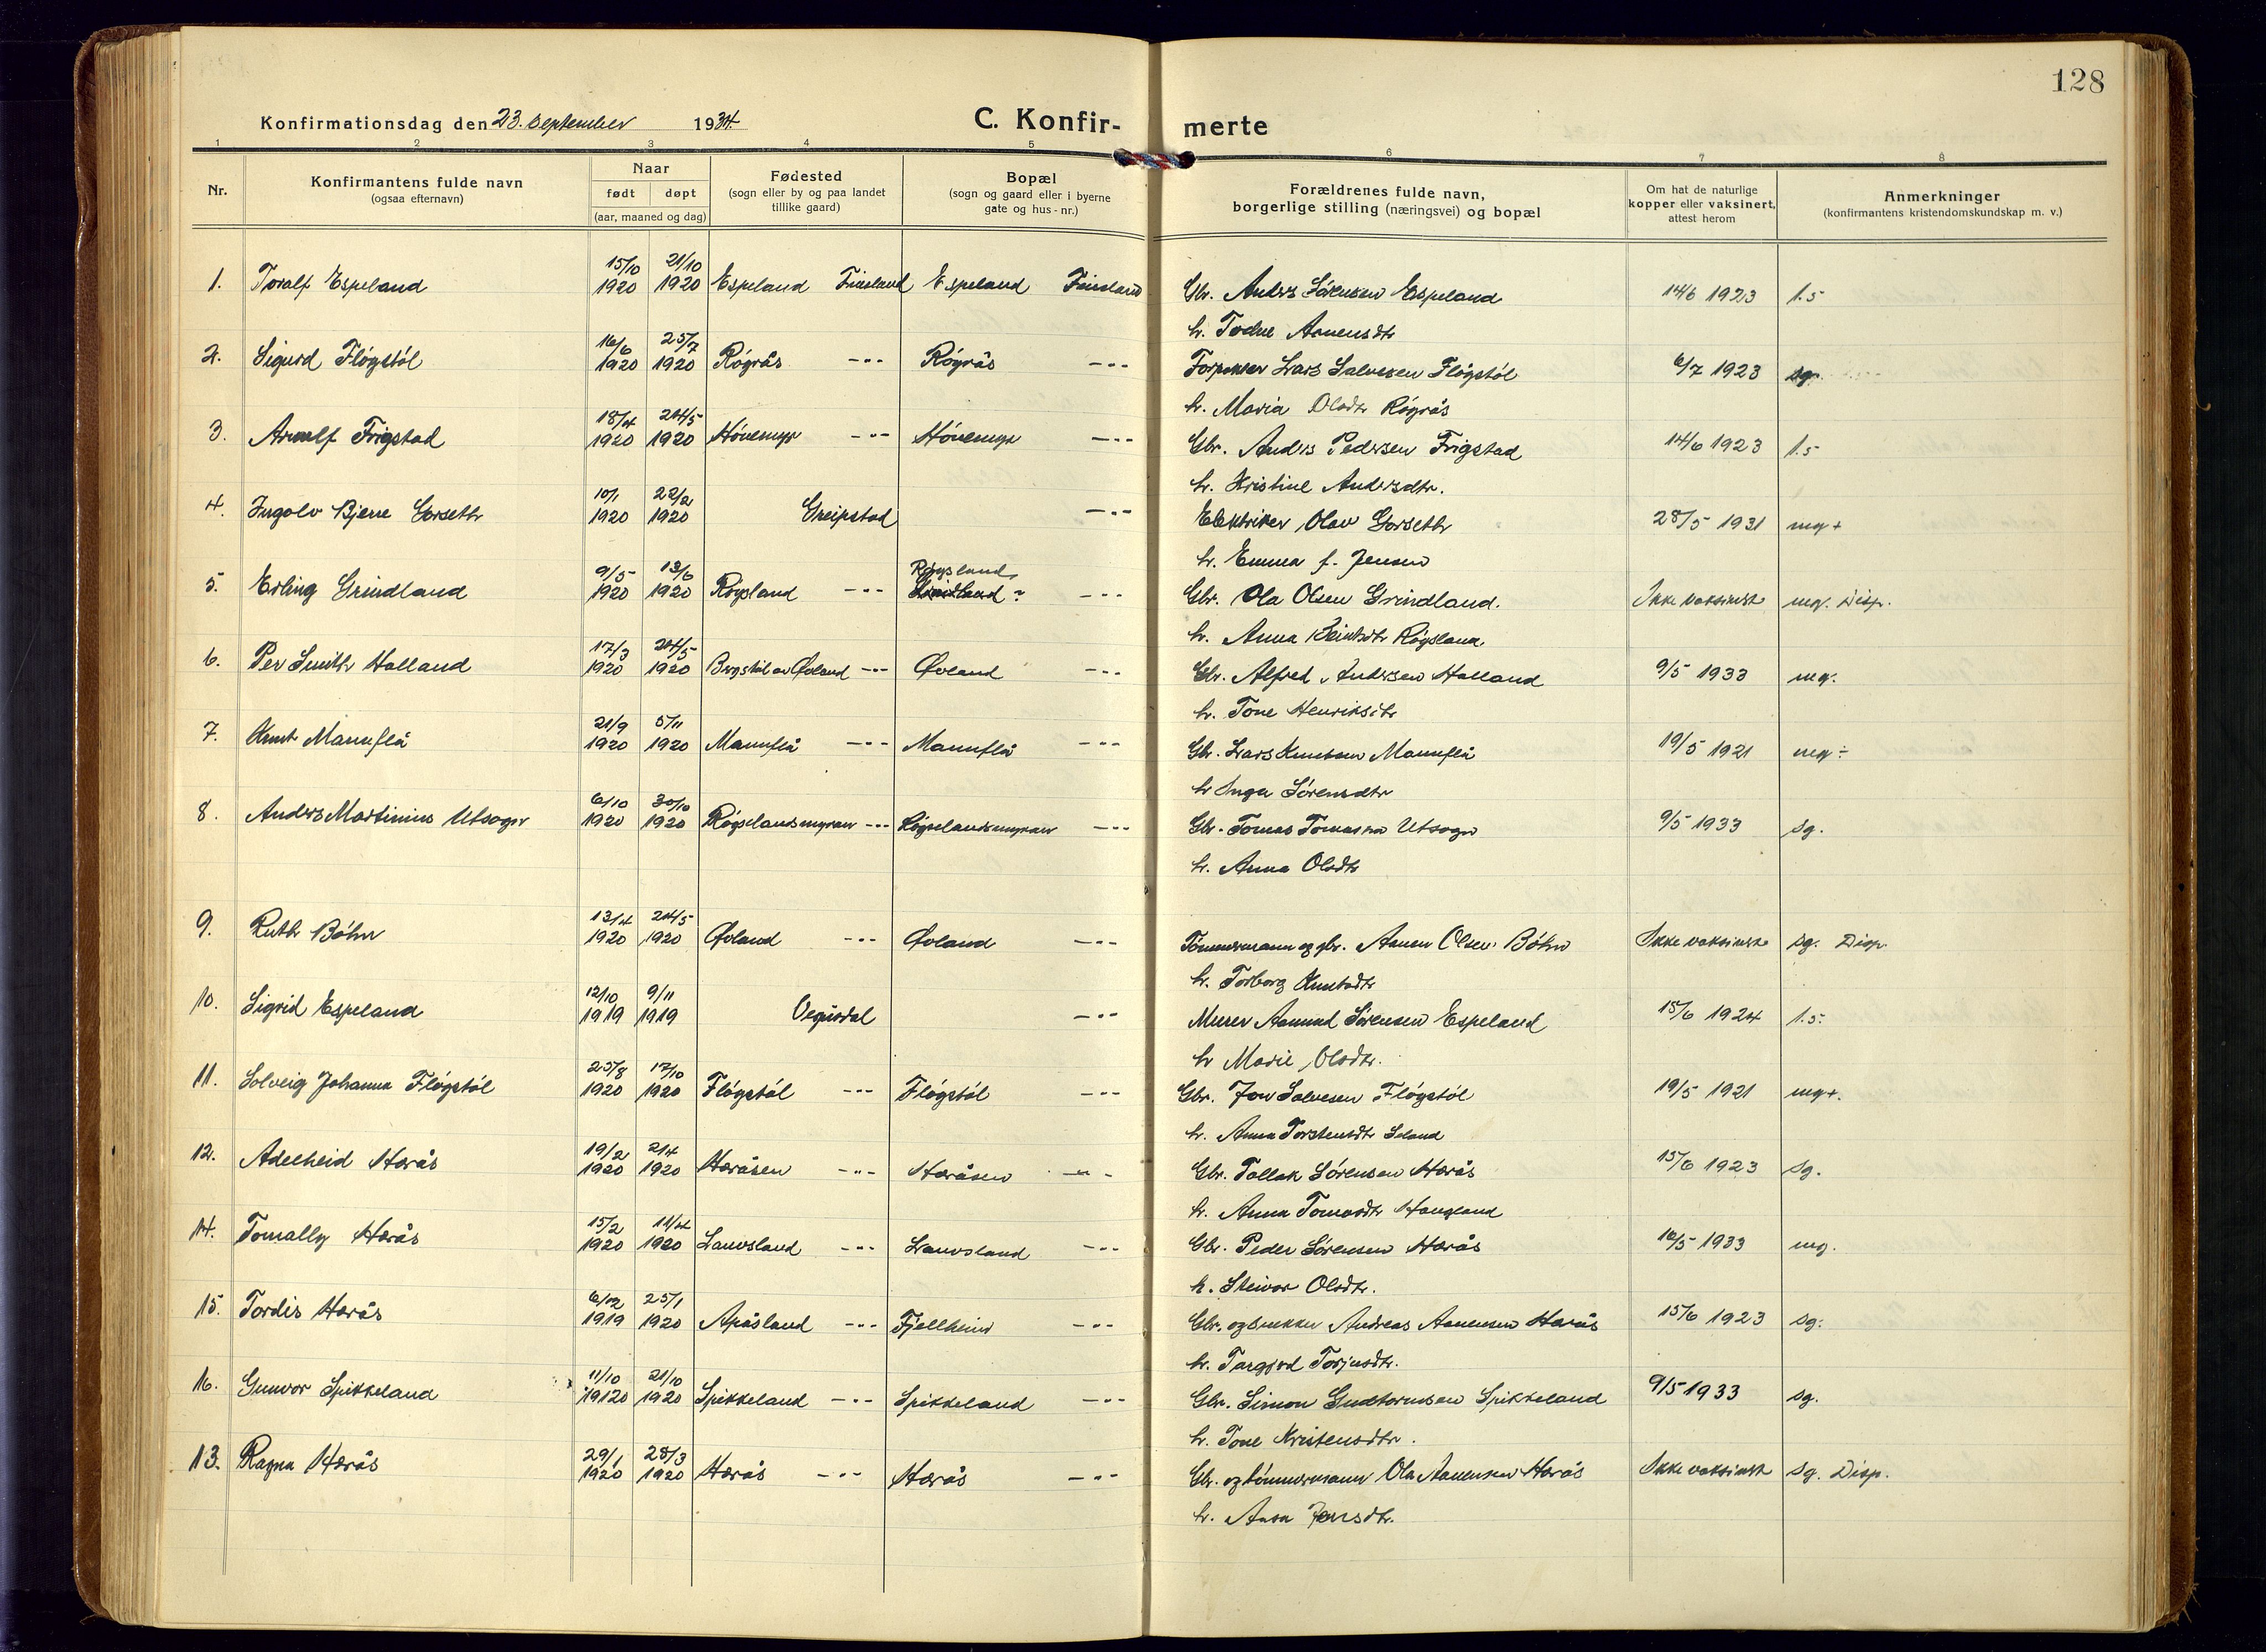 128
Konfirmationsdag den 23. september 1934.
C. Konfir- merte
1 2 3 4 5 6 7 8
Nr.
Konfirmantens fulde navn
(ogsaa efternavn)
Naar
født døpt
(aar, maaned og dag)
Fødested
(sogn eller by og paa landet
tillike gaard)
Bopæl
(sogn og gaard eller i byerne
gate og hus-nr.)
Forældrenes fulde navn,
borgerlige stilling (næringsvei) og bopæl
Om hat de naturlige
kopper eller vaksinert,
attest herom
Anmerkninger
(konfirmantens kristendomskundskap m. v.)
15/10 21/10
1. Toralf Espeland 1920 1920 Espeland Finsland Espeland Finsland Gbr. Anders Sørensen Espeland 14/6 1923 1.5
h. Todne Aanensdtr
16/6 25/7
2. Sigurd Fløgstøl 1920 1920 Røgrås -"- Røgrås -"- Forpakter Lars Salvesen Fløgstøl 6/7 1923 sg.
h. Maria Olsdtr Røgrås
18/4 24/5
3. Arnulf Frigstad 1920 1920 Hónemyr -"- Hónemyr -"- Gbr. Anders Pedersen Frigstad 14/6 1923 1.5
h. Kristine Andersdtr.
10/1 22/2
4. Ingolv Bjerre Gorseth 1920 1920 Greipstad -"- Elektriker Olav Gorseth 28/5 1931 mg+
h. Emma f. Jensen
9/5 13/6 Røysland
5. Erling Grindland 1920 1920 Røysland -"- Grindland -"- Gbr. Ola Olsen Grindland. Ikke vaksinert mg. Disp.
h. Anna Røysland
17/3 24/5
6. Per Smith Holland 1920 1920 Bergstøl av Øvland -"- Øvland -"- Gbr. Alfred Andersen Holland 9/5 1933 mg.
h. Tone Henriksdtr
21/9 5/11
7. Knut Mannflå 1920 1920 Mannflå -"- Mannflå -"- Gbr. Lars Knutsen Mannflå 19/5 1921 mg÷
h. Inga Sørensdtr
6/10 30/10
8. Anders Martinius Utsogn 1920 1920 Røyslandsmyran -"- Røyslandsmyran -"- Gbr. Tomas Tomassen Utsogn 9/5 1933 sg.
h. Anna Olsdtr
13/4 24/5
9. Ruth Bøhn 1920 1920 Øvland -"- Øvland -"- Tømmermann og gbr. Aanen Olsen Bøhn Ikke vaksinert sg. Disp.
h. Torborg Knutsdtr
12/10 9/11
10. Sigrid Espeland 1919 1919 Vegusdal -"- Murer Aamund Sørensen Espeland 15/6 1924 1.5.
h. Marie Olsdtr.
25/8 17/10
11. Solveig Johanna Fløgstøl 1920 1920 Fløgstøl -"- Fløgstøl -"- Gbr. Jon Salvesen Fløgstøl 19/5 1921 mg+.
h. Anna Torstensdtr
19/2 21/4
12. Adelheid Hærås 1920 1920 Hæråsen -"- Hæråsen -"- Gbr. Tallak Sørensen Hærås 15/6 1923 sg.
h. Anna Tomasdtr Haugland
15/2 11/4
14. Tomally Hærås 1920 1920 Lauvsland -"- Lauvsland -"- Gbr. Peder Sørensen Hærås 16/5 1933 mg.
h. Steinvor Olsdtr.
6/12 25/1
15. Tordis Hærås 1919 1920 Apåsland -"- Fjellheim -"- Gbr. og snekker Andreas Aanensen Hærås 15/6 1923 sg.
h. Targjerd Torjusdtr.
11/10 21/10
16. Gunvor Spikkeland 19120 1920 Spikkeland -"- Spikkeland -"- Gbr. Simon Gudtormsen Spikkeland 9/5 1933 sg.
h. Tone Kristensdtr.
29/1 28/3
13. Ragna Hærås 1920 1920 Hærås -"- Hærås -"- Gbr. og tømmermann Ola Aanensen Hærås Ikke vaksinert sg. Disp.
h. Anna Jensdtr.